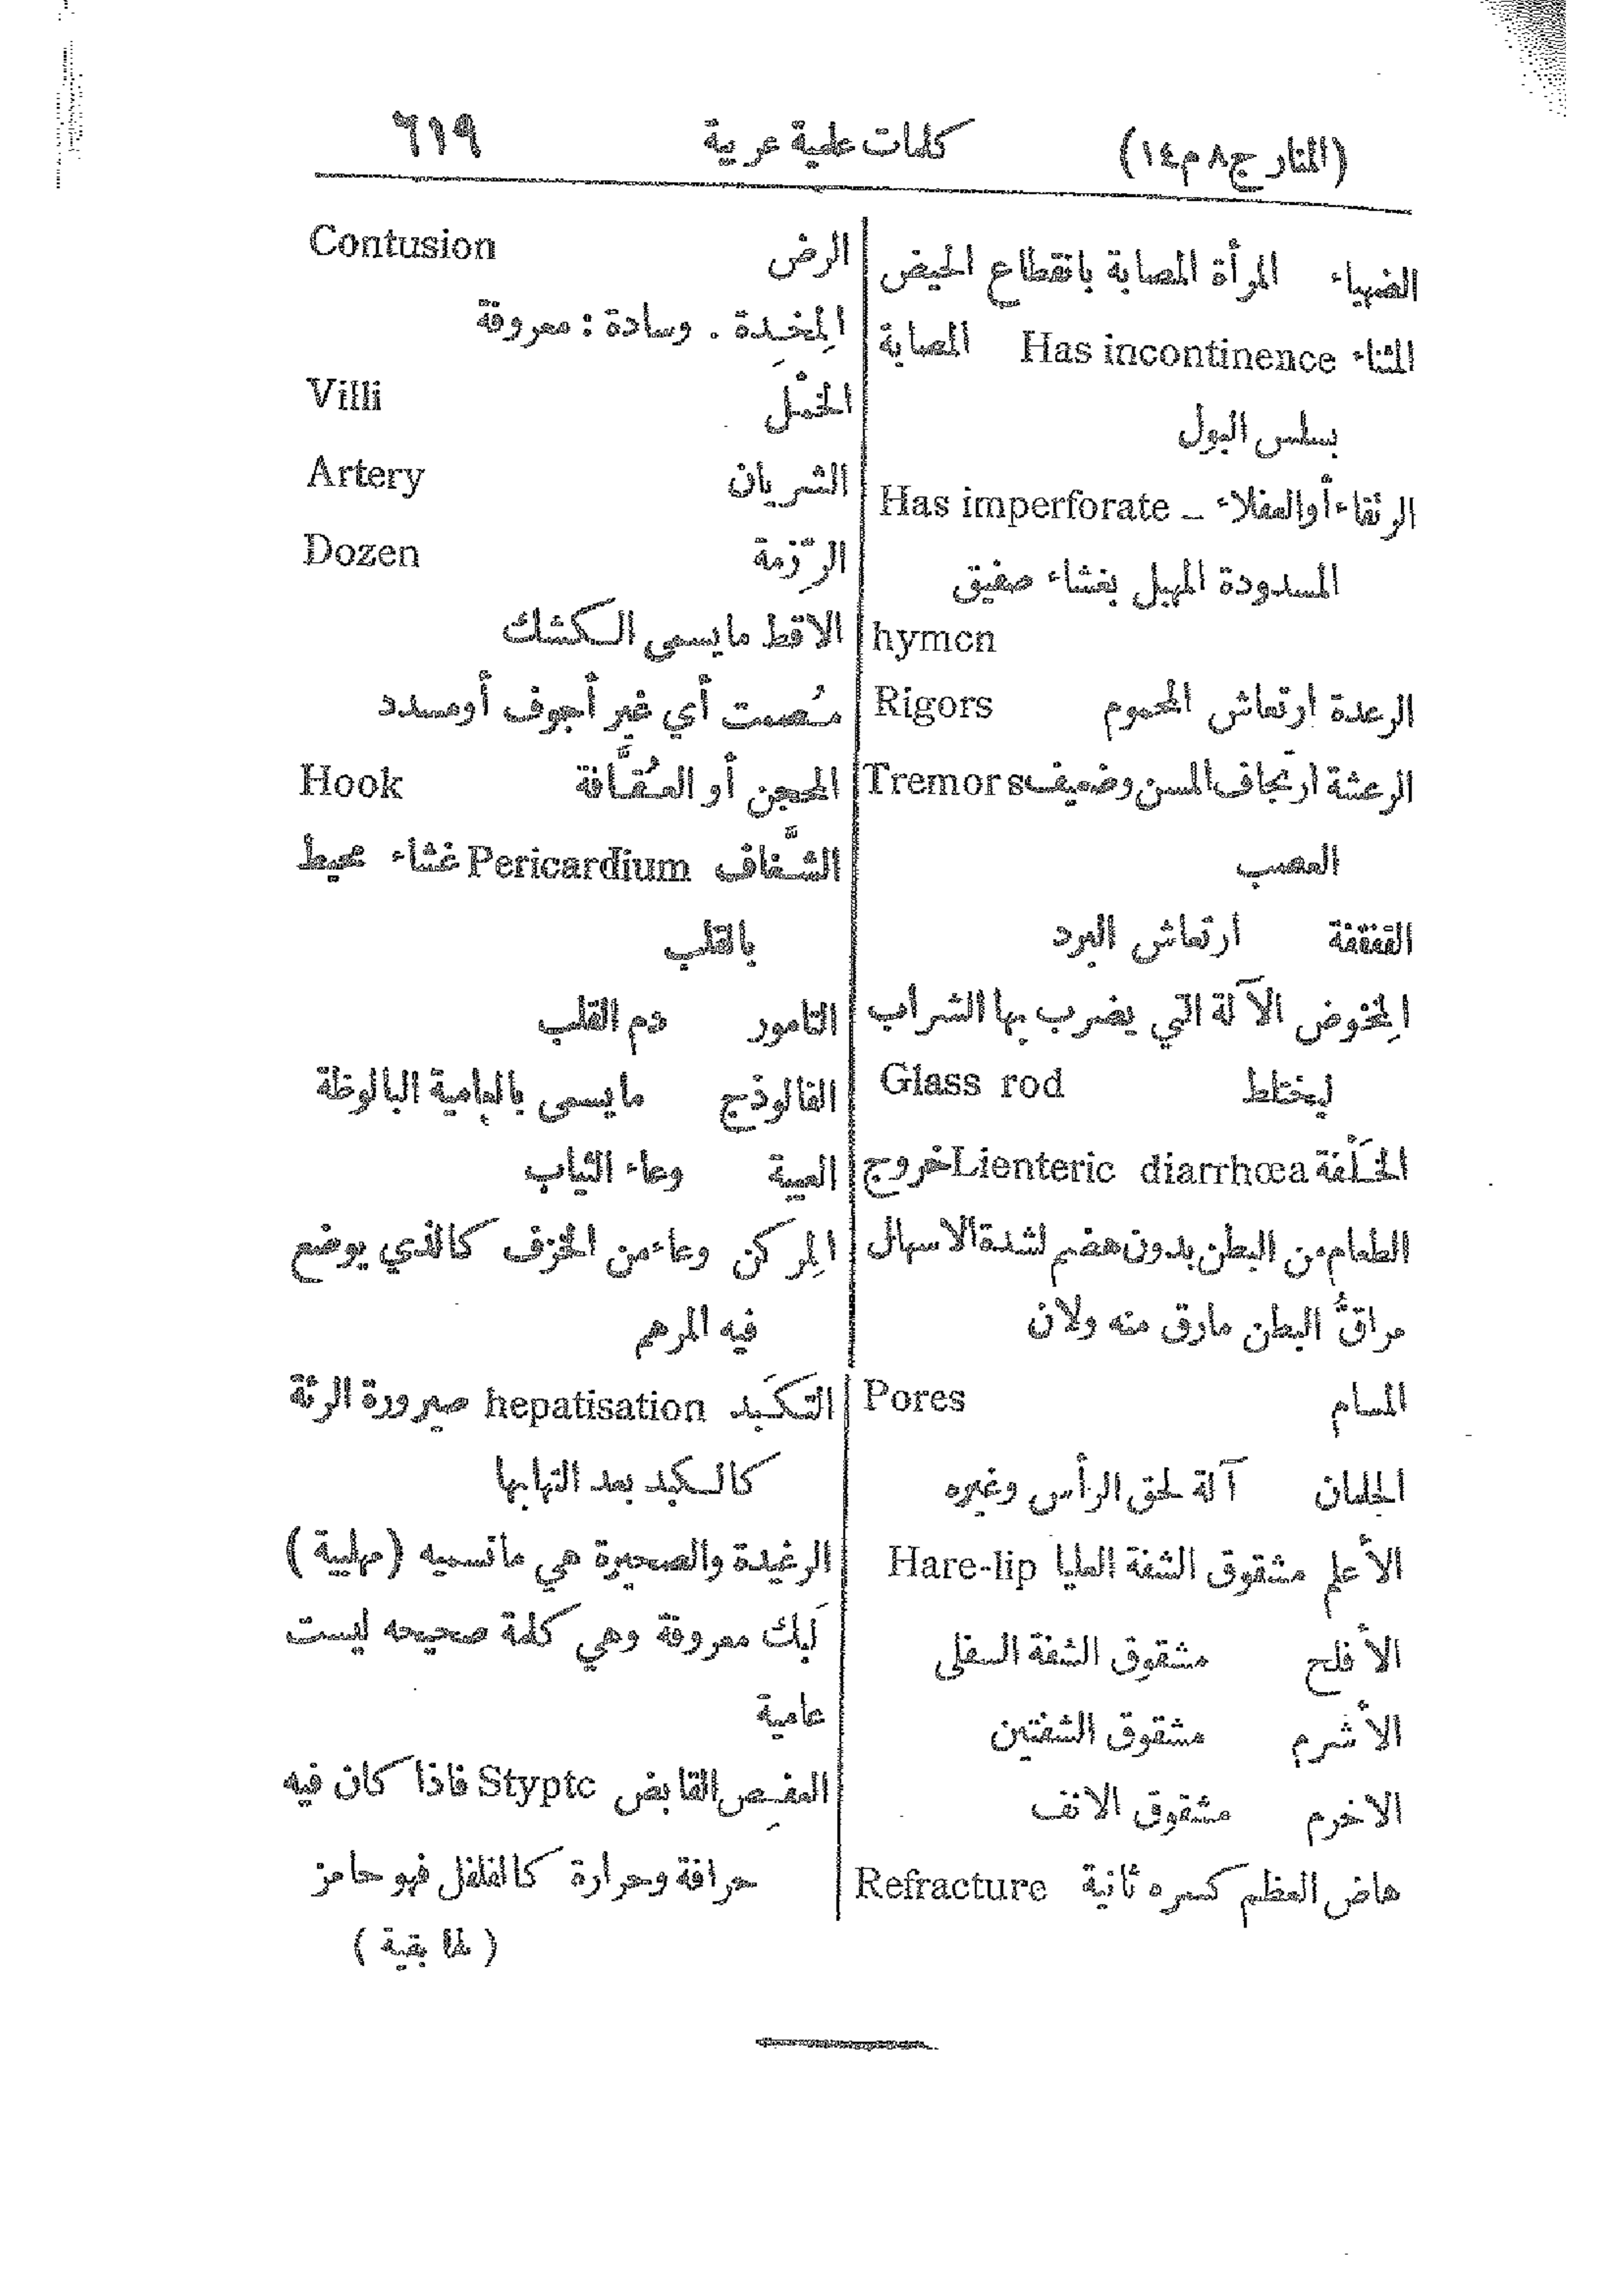 (المنار ج ٨ م ١٤) كلمات علمية عربية ٦١٩
الضهياء المرأة المصابة بانقطاع الحيض
المثناء Has incontinence المصابة
بسلس البول
الرتقاء أو العفلاء – Has imperforate
المسدودة المهبل بغشاء صفيق
hymen
الرعدة ارتعاش المحموم Rigors
الرعشة ارتجاف المسن وضعيف Tremors
العصب
القفقفة ارتعاش البرد
المِخْوض الآلة التي يضرب بها الشراب
ليختلط Glass rod
الخَلْفة Lienteric diarrhœa خروج
الطعام من البطن بدون هضم لشدة الاسهال
مراقُّ البطن مارق منه ولان
المسام Pores
الجلمان آلة لحق الرأس وغيره
الأعلم مشقوق الشفة العليا Hare-lip
الأفلح مشقوق الشفة السفلى
الأشرم مشقوق الشفتين
الاخرم مشقوق الانف
هاض العظم كسره ثانية Refracture
الرض Contusion
المِخَدة . وسادة : معروفة
الخمْل Villi
الشريان Artery
الرِّزمة Dozen
الاقط مايسمى الكشك
مُصمت أي غير أجوف أومسدد
المحجن أو العُقَّافة Hook
الشَّغاف Pericardium غشاء محيط
بالقلب
التامور دم القلب
الفالوذج مايسمى بالعامية البالوظة
العيبة وعاء الثياب
المِركن وعاء من الخزف كالذي يوضع
فيه المرهم
التكَبد hepatisation صيرورة الرئة
كالكبد بعد التهابها
الرغيدة والصحيرة هي مانسميه (مهلبية)
لَبك معروفة وهي كلمة صحيحه ليست
عامية
العفِص القابض Styptc فاذا كان فيه
حرافة وحرارة كالفلفل فهو حامز
(لها بقية)